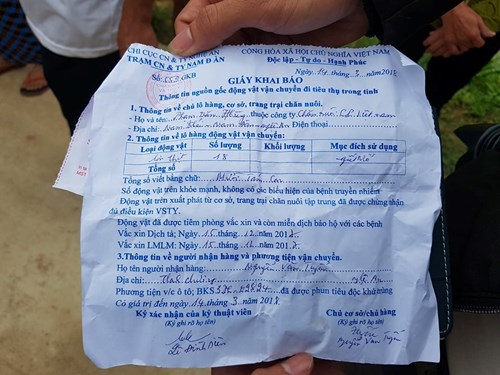 CHI CỤC CN & TY NGHỆ AN
CỘNG HÒA XÃ HỘI CHỦ NGHĨA VIỆT NAM
TRẠM CN & TY NAM ĐÀN
Độc lập - Tự do - Hạnh Phúc
Số: GKB
Ngày 14 tháng 3 năm 2018
GIẤY KHAI BÁO
Thông tin nguồn gốc động vật vận chuyển đi tiêu thụ trong tỉnh
1. Thông tin về chủ lô hàng, cơ sở, trang trại chăn nuôi.
- Họ và tên: thuộc công ty Chăn nuôi C.P. Việt nam
- Địa chỉ: Điện thoại
2. Thông tin về lô hàng động vật vận chuyển:
Loại động vật Số lượng Khối lượng Mục đích sử dụng
lợn thịt 18 giết mổ
Tổng số
Tổng số viết bằng chữ: Mười tám con
Số động vật trên khỏe mạnh, không có các biểu hiện của bệnh truyền nhiễm
Động vật trên xuất phát từ cơ sở, trang trại chăn nuôi tập trung đã được chứng nhận
đủ điều kiện VSTY.
Động vật đã được tiêm phòng vắc xin và còn miễn dịch bảo hộ với các bệnh
Vắc xin Dịch tả; Ngày 15 tháng 12 năm 2017
Vắc xin LMLM: Ngày 15 tháng năm 2017
3.Thông tin về người nhận hàng và phương tiện vận chuyển.
Họ tên người nhận hàng: Nguyễn Văn
Địa chỉ: Thanh chương
Phương tiện v/c ô tô; BKS đã được phun tiêu độc khử trùng
Có giá trị đến ngày 14 tháng 3 năm 2018
Ký xác nhận của kỹ thuật viên
Chủ cơ sở/chủ hàng
(Ký ghi rõ họ tên)
(Ký ghi rõ họ tên)
Nguyễn Văn